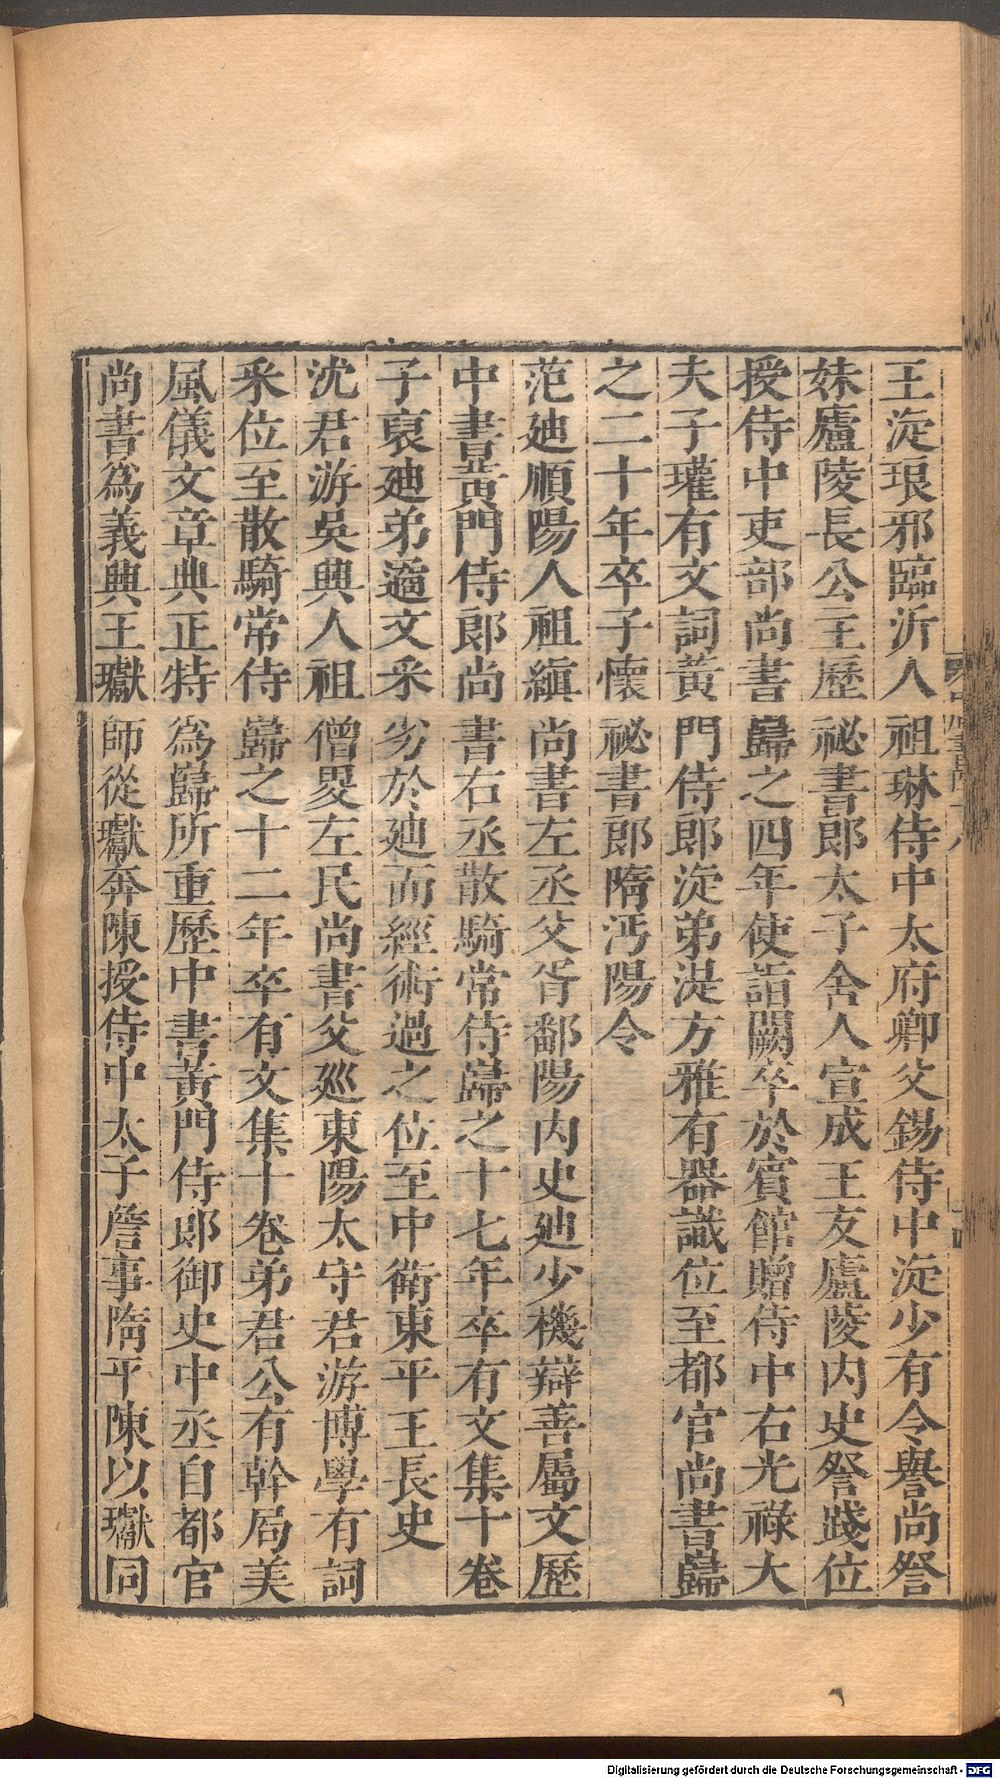 王淀琅邪臨沂人祖琳侍中太府卿父錫侍中淀少有令譽尚詧
妹廬陵長公主歷祕書郎太子舍人宣成王友廬陵內史詧踐位
授侍中吏部尚書歸之四年使詣闕卒於賓館贈侍中右光祿大
夫子瓘有文詞黃門侍郎淀弟湜方雅有器識位至都官尚書歸
之二十年卒子懷祕書郎隋沔陽令
范廸順陽人祖縝尚書左丞父胥鄱陽內史廸少機辯善屬文歷
中書黃門侍郎尚書右丞散騎常侍歸之十七年卒有文集十卷
子裒廸弟遹文采劣於廸而經術過之位至中衞東平王長史
沈君游吳興人祖僧畟左民尚書父巡東陽太守君游博學有詞
采位至散騎常侍歸之十二年卒有文集十卷弟君公有幹局美
風儀文章典正特為歸所重歷中書黃門侍郎御史中丞自都官
尚書為義興王瓛師從瓛奔陳授侍中太子詹事隋平陳以瓛同
Digitalisierung gefördert durch die Deutsche Forschungsgemeinschaft - DFG